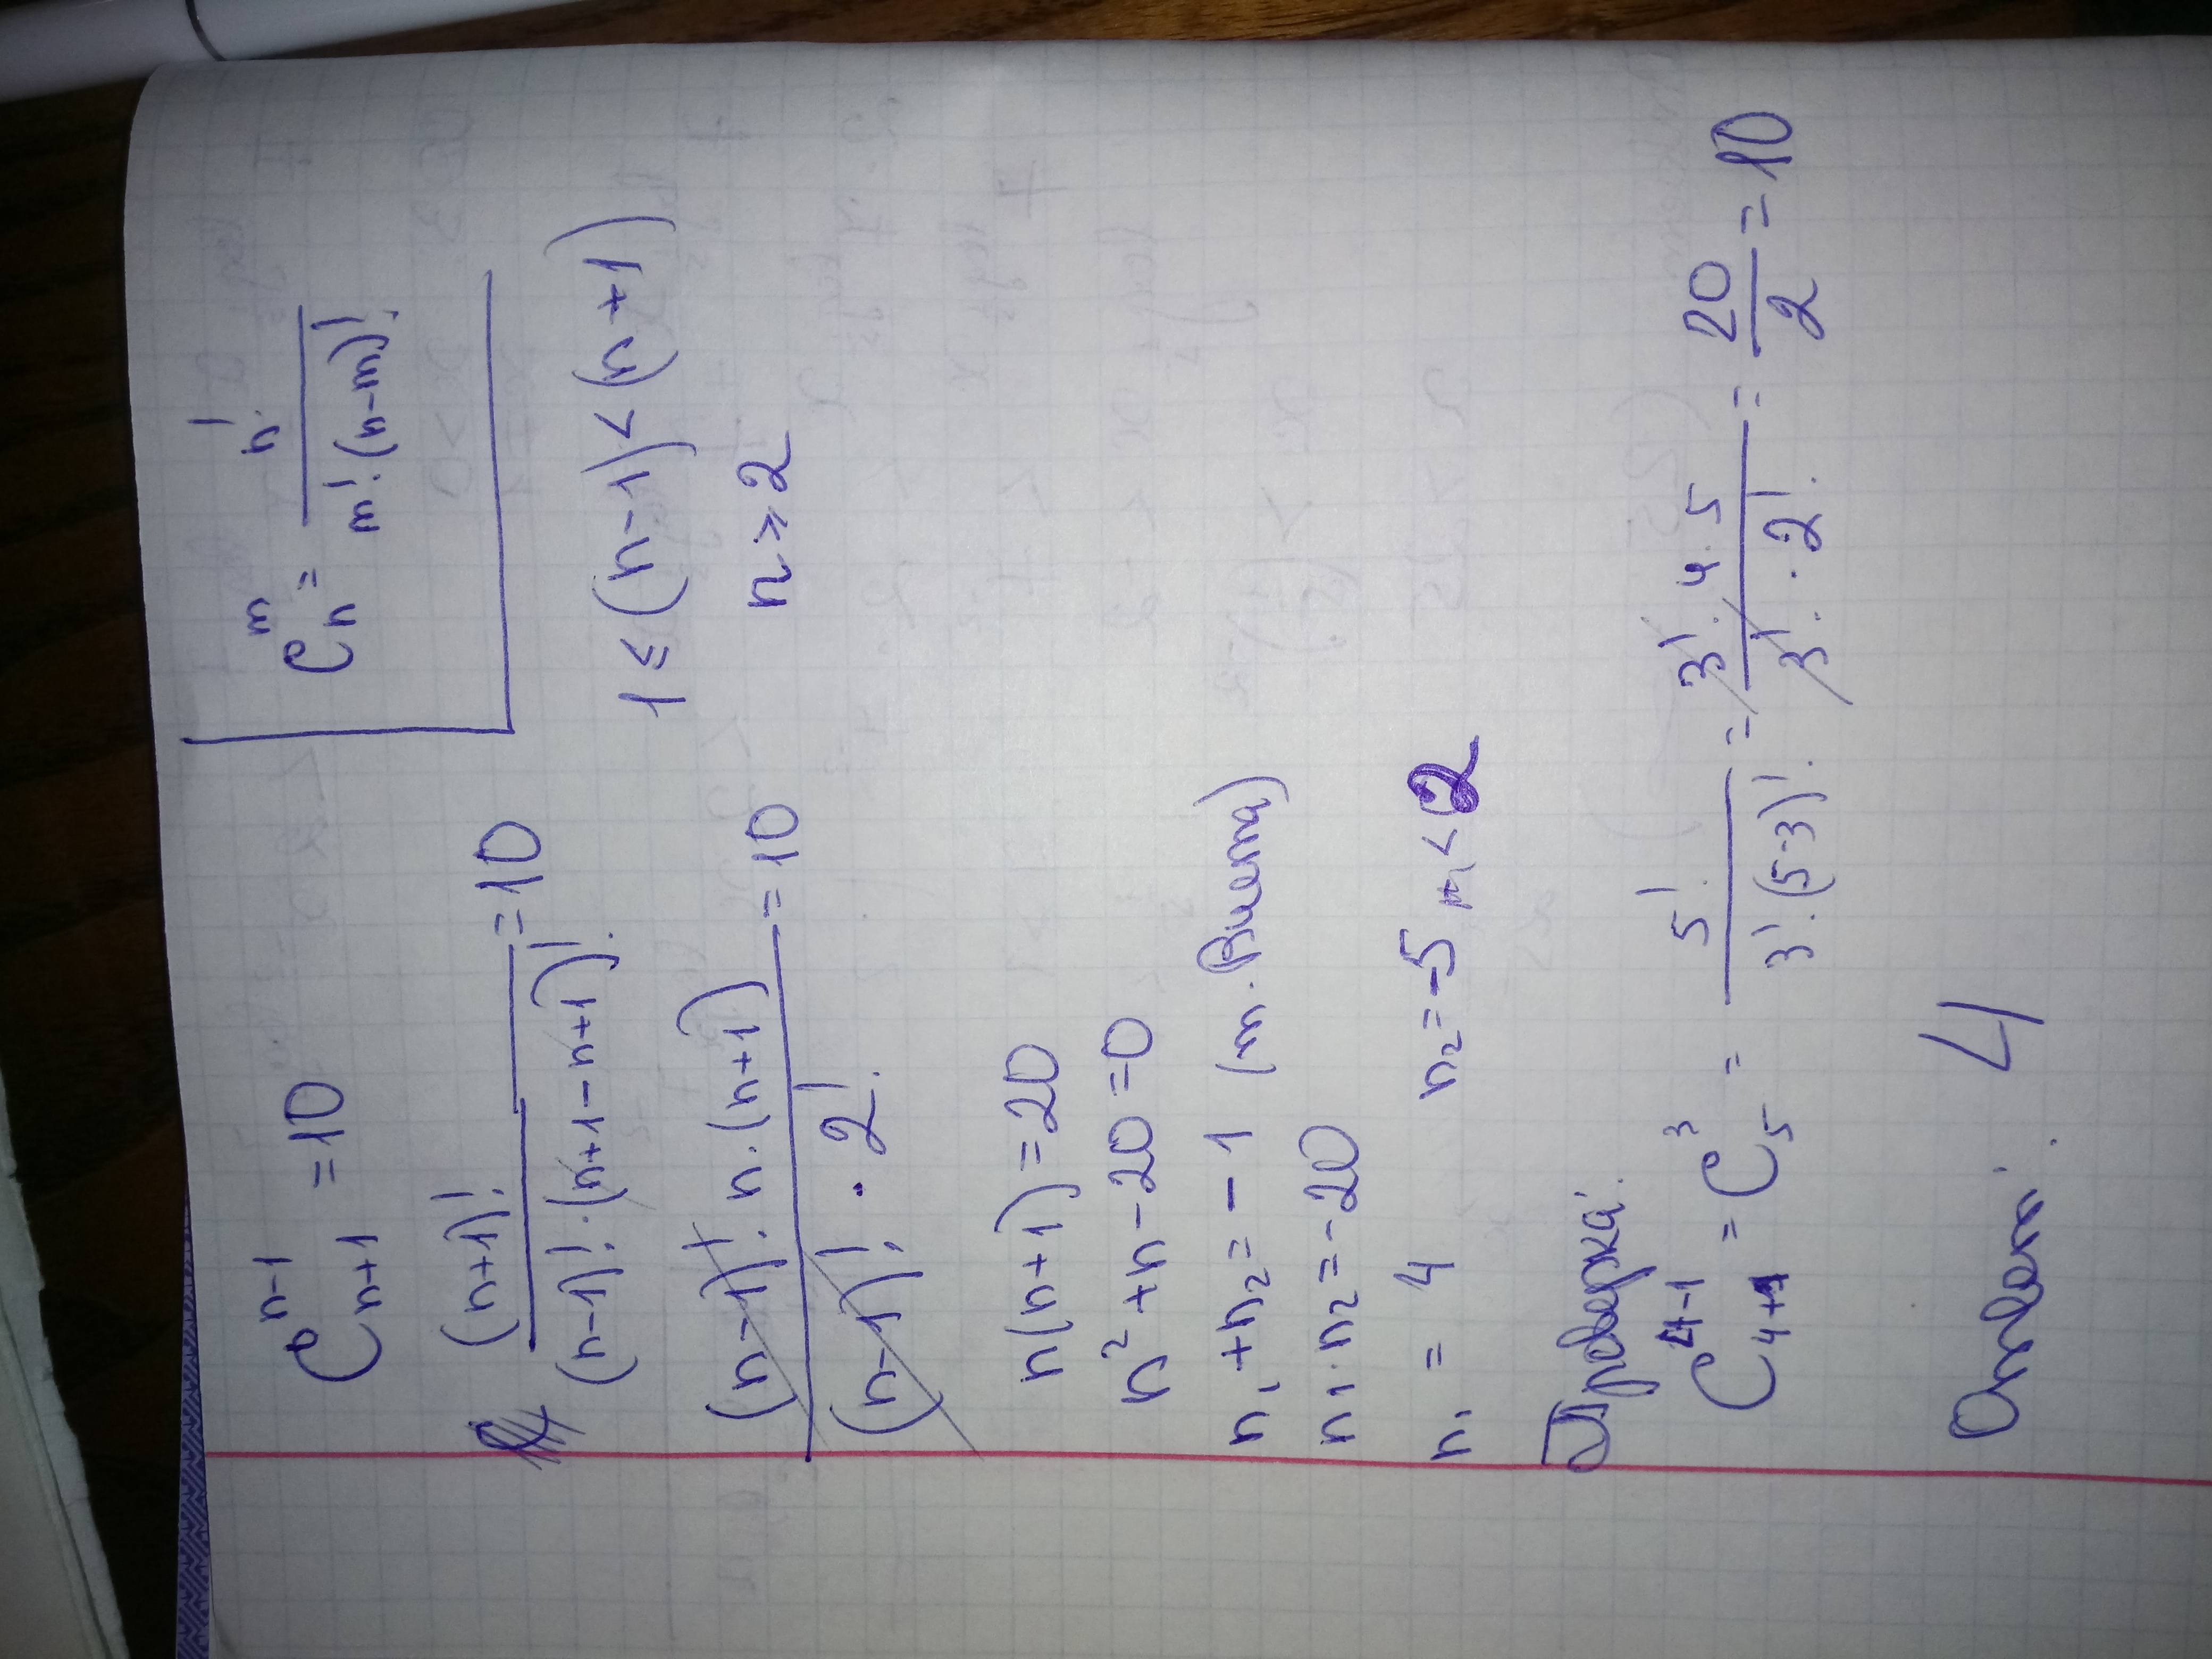 C_{n+1}^{n-1} = 10
C_n^m = \frac{n!}{m!·(n-m)!}
\frac{(n+1)!}{(n-1)!·(n+1-n+1)!} = 10
1 ≤ (n-1) < (n+1)
\frac{(n-1)!·n·(n+1)}{(n-1)!·2!} = 10
n ≥ 2
n(n+1) = 20
n² + n - 20 = 0
n₁ + n₂ = -1 (т. Виета)
n₁ · n₂ = -20
n₁ = 4 n₂ = -5 < 2
Проверка:
C_{4+1}^{4-1} = C_5^3 = \frac{5!}{3!·(5-3)!} = \frac{3!·4·5}{3!·2!} = \frac{20}{2} = 10
Ответ: 4